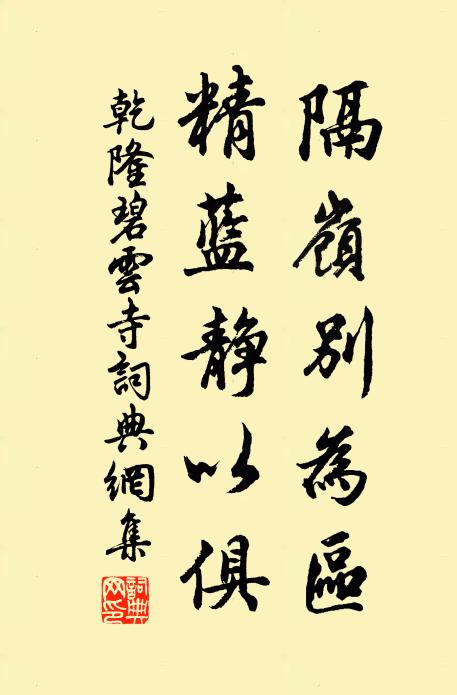 隔嶺別為區
精藍静以俱
乾隆碧雲寺詞典網集
詞典网印